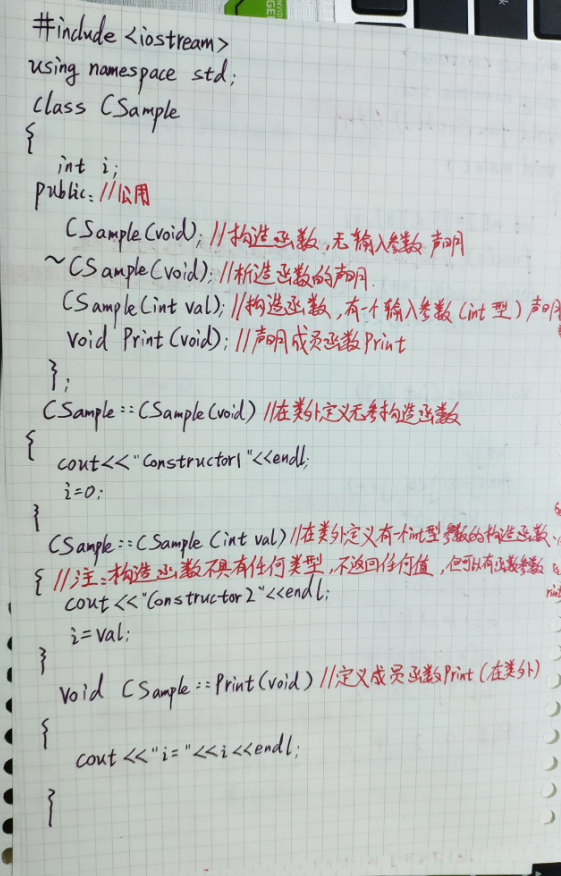 #include <iostream>
using namespace std;
class CSample
{
int i;
public: //公用
CSample(void); //构造函数,无输入参数 声明
~CSample(void); //析造函数的声明
CSample(int val); //构造函数,有一个输入参数(int型)声明
void Print(void); //声明成员函数Print
};
CSample::CSample(void) //在类外定义无参构造函数
{
cout<<"Constructor1"<<endl;
i=0;
}
CSample::CSample(int val) //在类外定义有一个int型参数的构造函数.
{ //注:构造函数不具有任何类型,不返回任何值,但可以有函数参数
cout<<"Constructor2"<<endl;
i=val;
}
void CSample::Print(void) //定义成员函数Print(在类外)
{
cout<<"i="<<i<<endl;
}